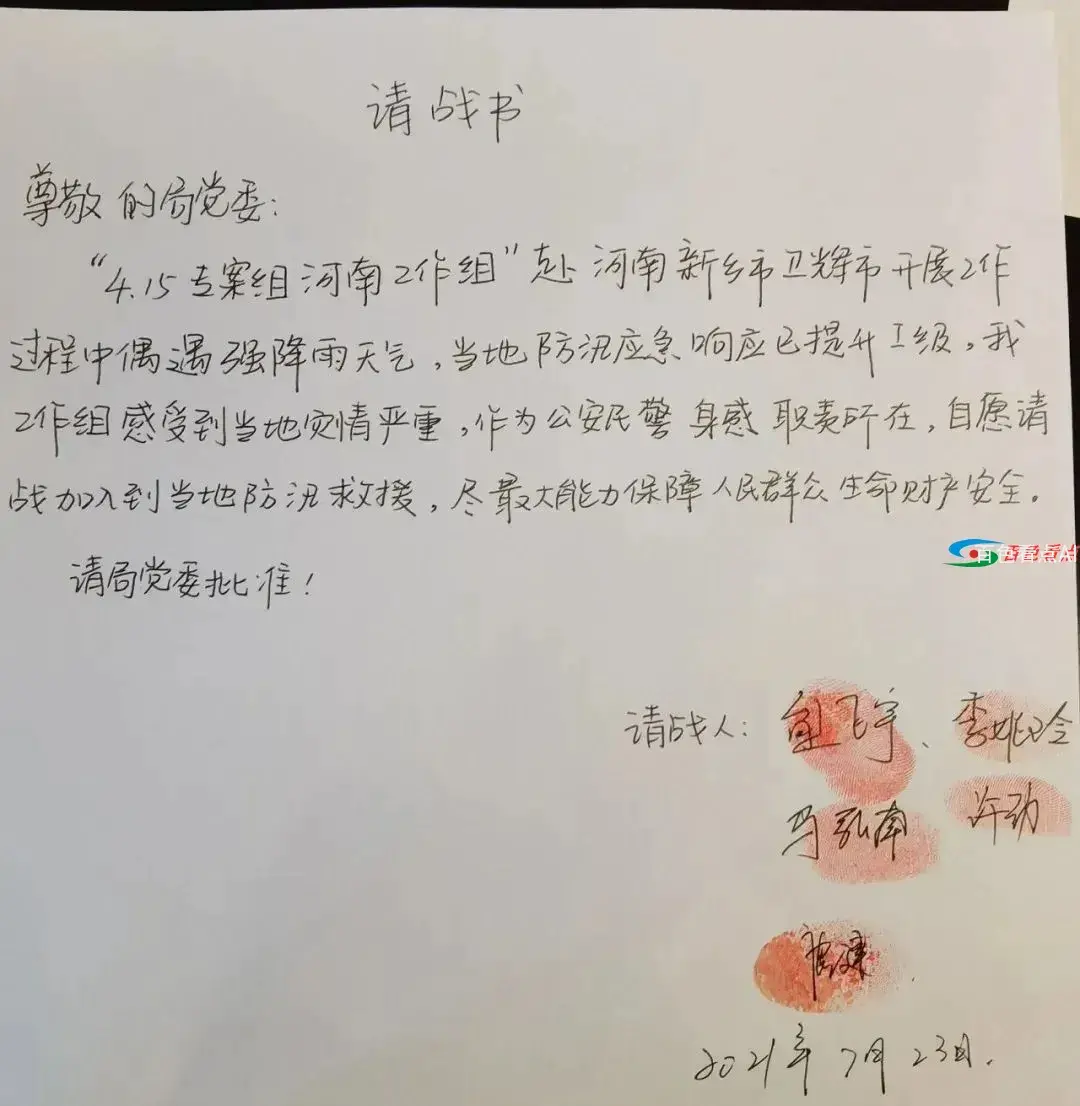 请战书
尊敬的局党委：
“4.15专案组河南工作组”赴河南新乡市卫辉市开展工作
过程中偶遇强降雨天气，当地防汛应急响应已提升I级，我
工作组感受到当地灾情严重，作为公安民警身感职责所在，自愿请
战加入到当地防汛救援，尽最大能力保障人民群众生命财产安全。
百色看点A
请局党委批准！
请战人：飞宇、李姚玲
马弘南 许劲
2021年7月23日.